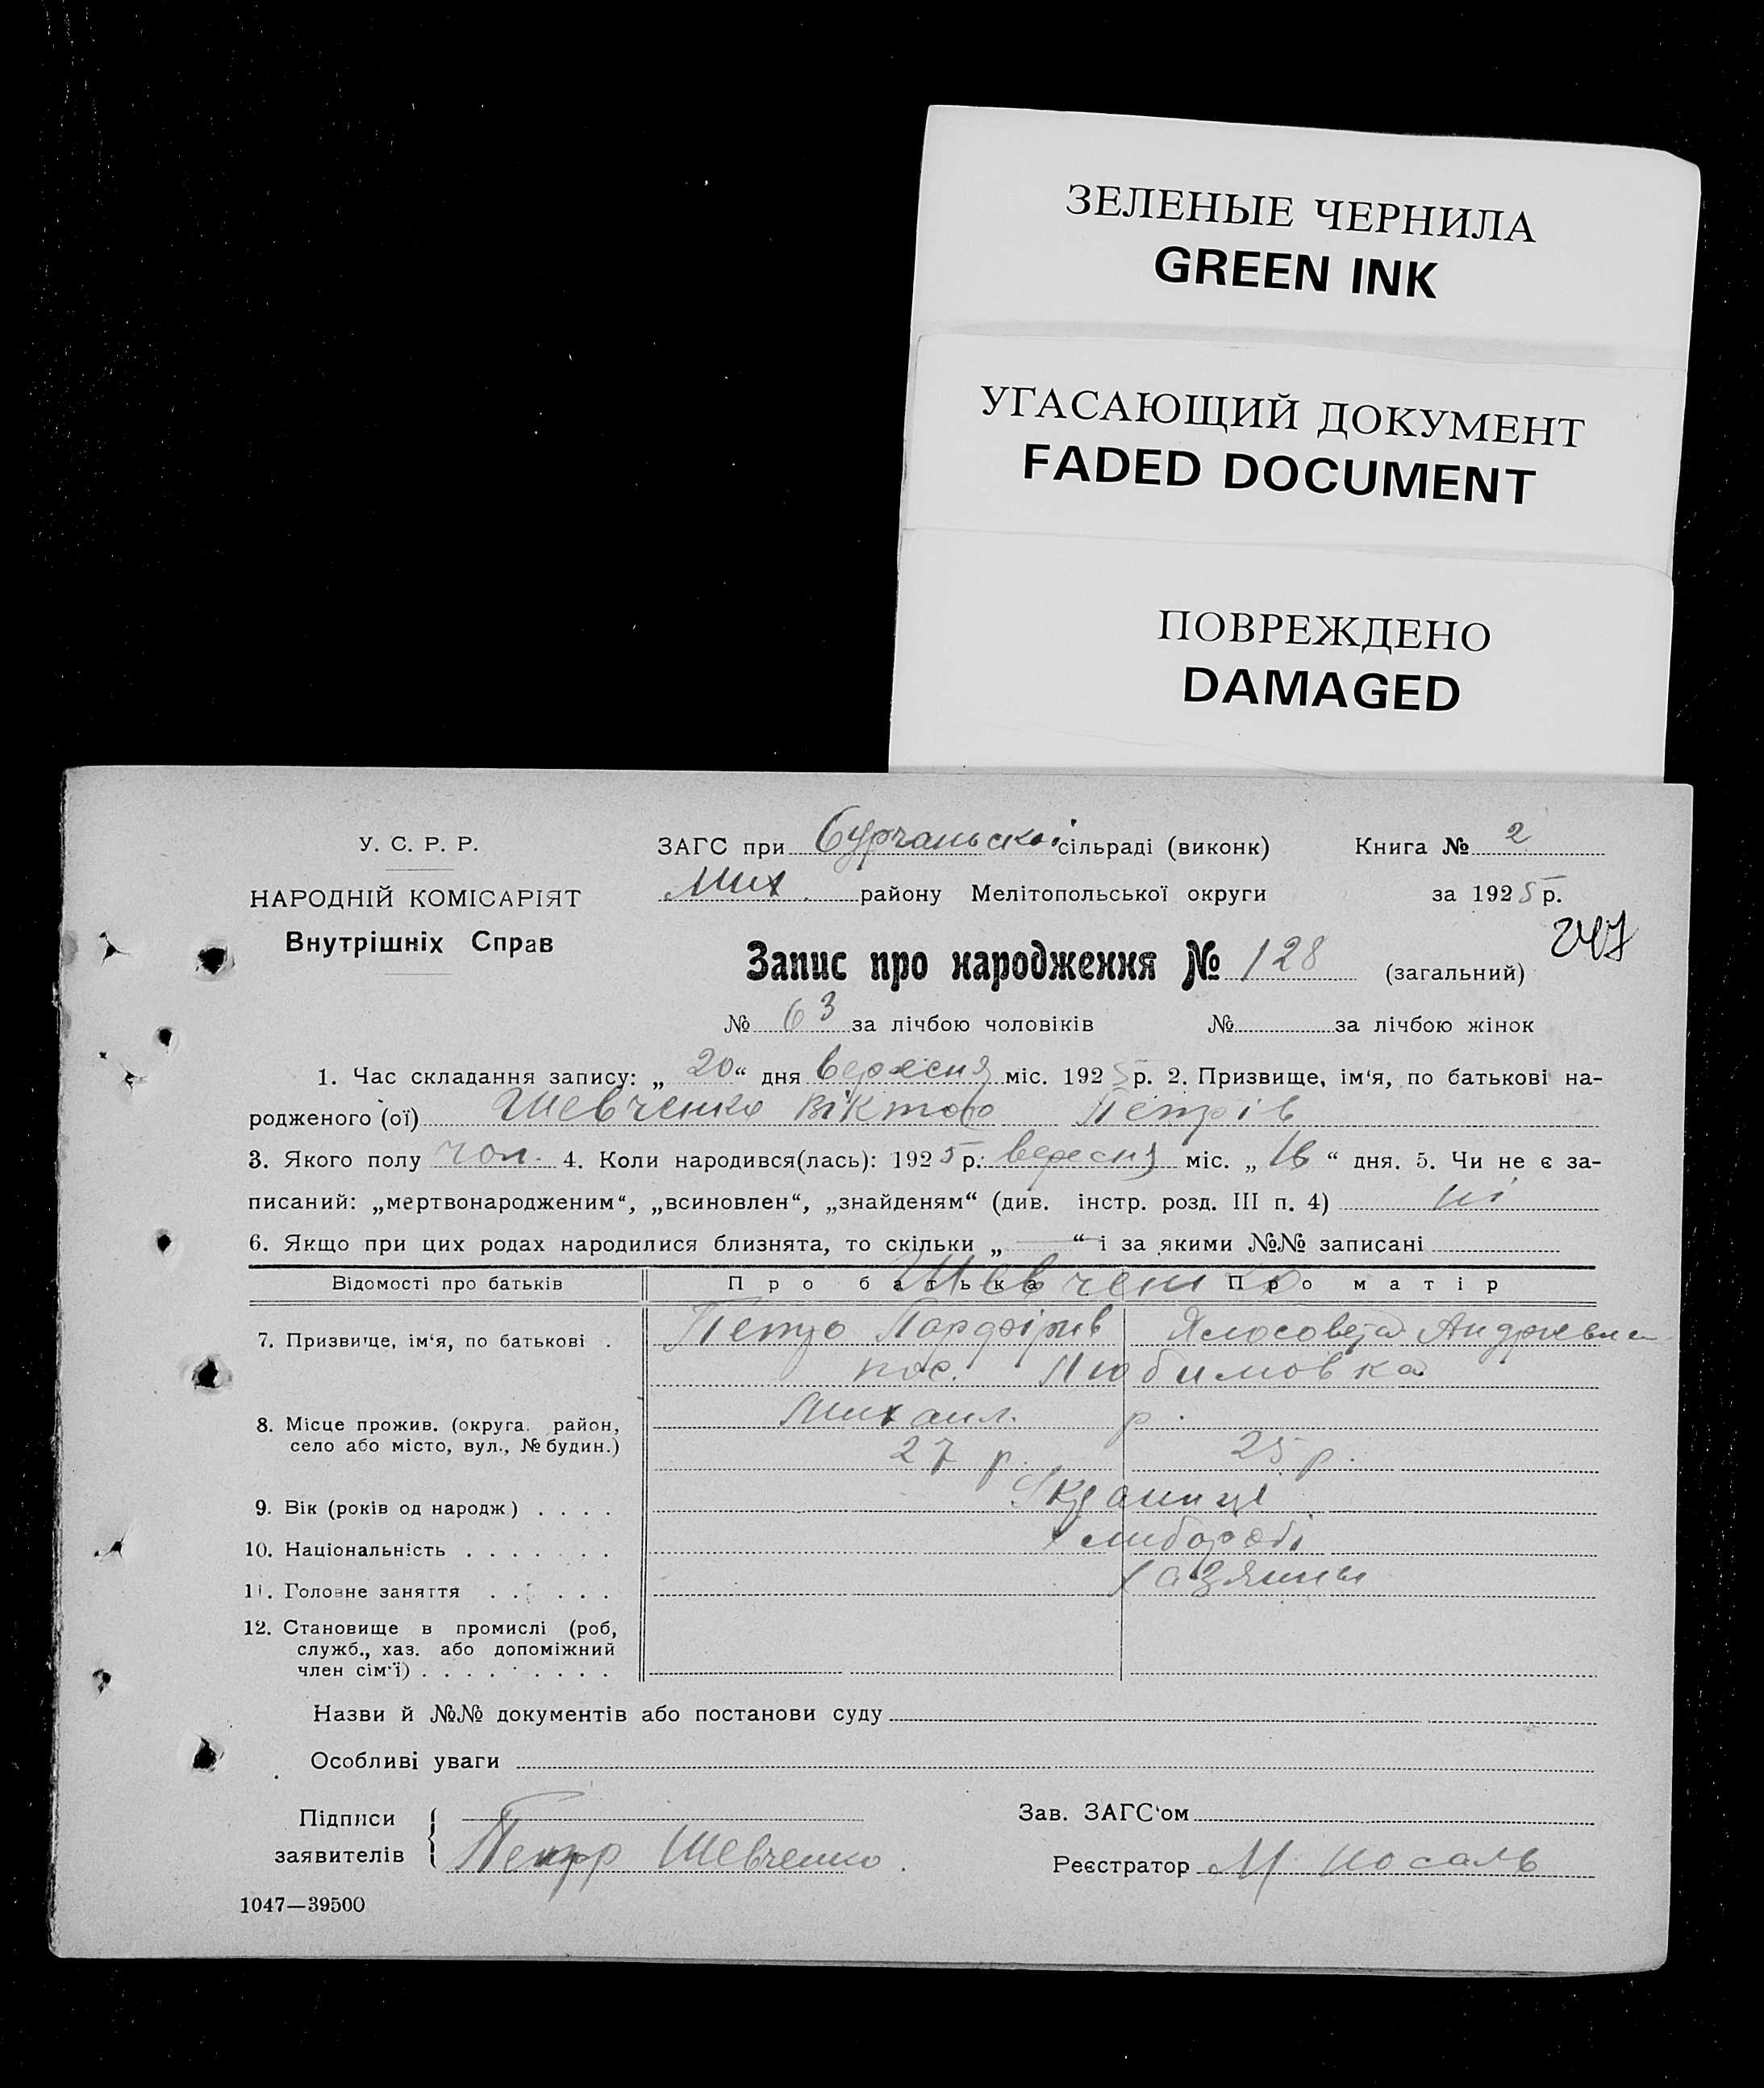 ЗЕЛЕНЫЕ ЧЕРНИЛА
GREEN INK
УГАСАЮЩИЙ ДОКУМЕНТ
FADED DOCUMENT
ПОВРЕЖДЕНО
DAMAGED
У. С. Р. Р.
НАРОДНІЙ КОМІСАРІЯТ
Внутрішніх Справ
ЗАГС при сільраді (виконк) Книга № 2
Мих району Мелітопольської округи за 1925 р.
247
Запис про народження № 128 (загальний)
№ 63 за лічбою чоловіків № за лічбою жінок
1. Час складання запису: „ 20 “ дня вересня міс. 1925 р. 2. Призвище, ім‘я, по батькові на-
родженого (ої) Шевченко Віктор Петрів
3. Якого полу чол. 4. Коли народився(лась): 1925 р. вересня міс. „ 16 “ дня. 5. Чи не є за-
писаний: „мертвонародженим“, „всиновлен“, „знайденям“ (див. інстр. розд. III п. 4) ні
6. Якщо при цих родах народилися близнята, то скільки „ — “ і за якими №№ записані
Відомості про батьків Про батька Про матір
Шевченко
7. Призвище, ім‘я, по батькові . Петро Парфірів Андриевна
пос. Любимовка
8. Місце прожив. (округа, район, село або місто, вул., № будин.) Михаил. р.
27 р. 25 р.
9. Вік (років од народж) . . . . Украинці
10. Національність . . . . . . . хлибороби
11. Головне заняття . . . . . .
12. Становище в промислі (роб, служб., хаз. або допоміжний член сім‘ї) . . . . . . . . .
Назви й №№ документів або постанови суду
Особливі уваги
Підписи
заявителів
Петр Шевченко.
Зав. ЗАГС‘ом
Реєстратор М Носаль
1047—39500